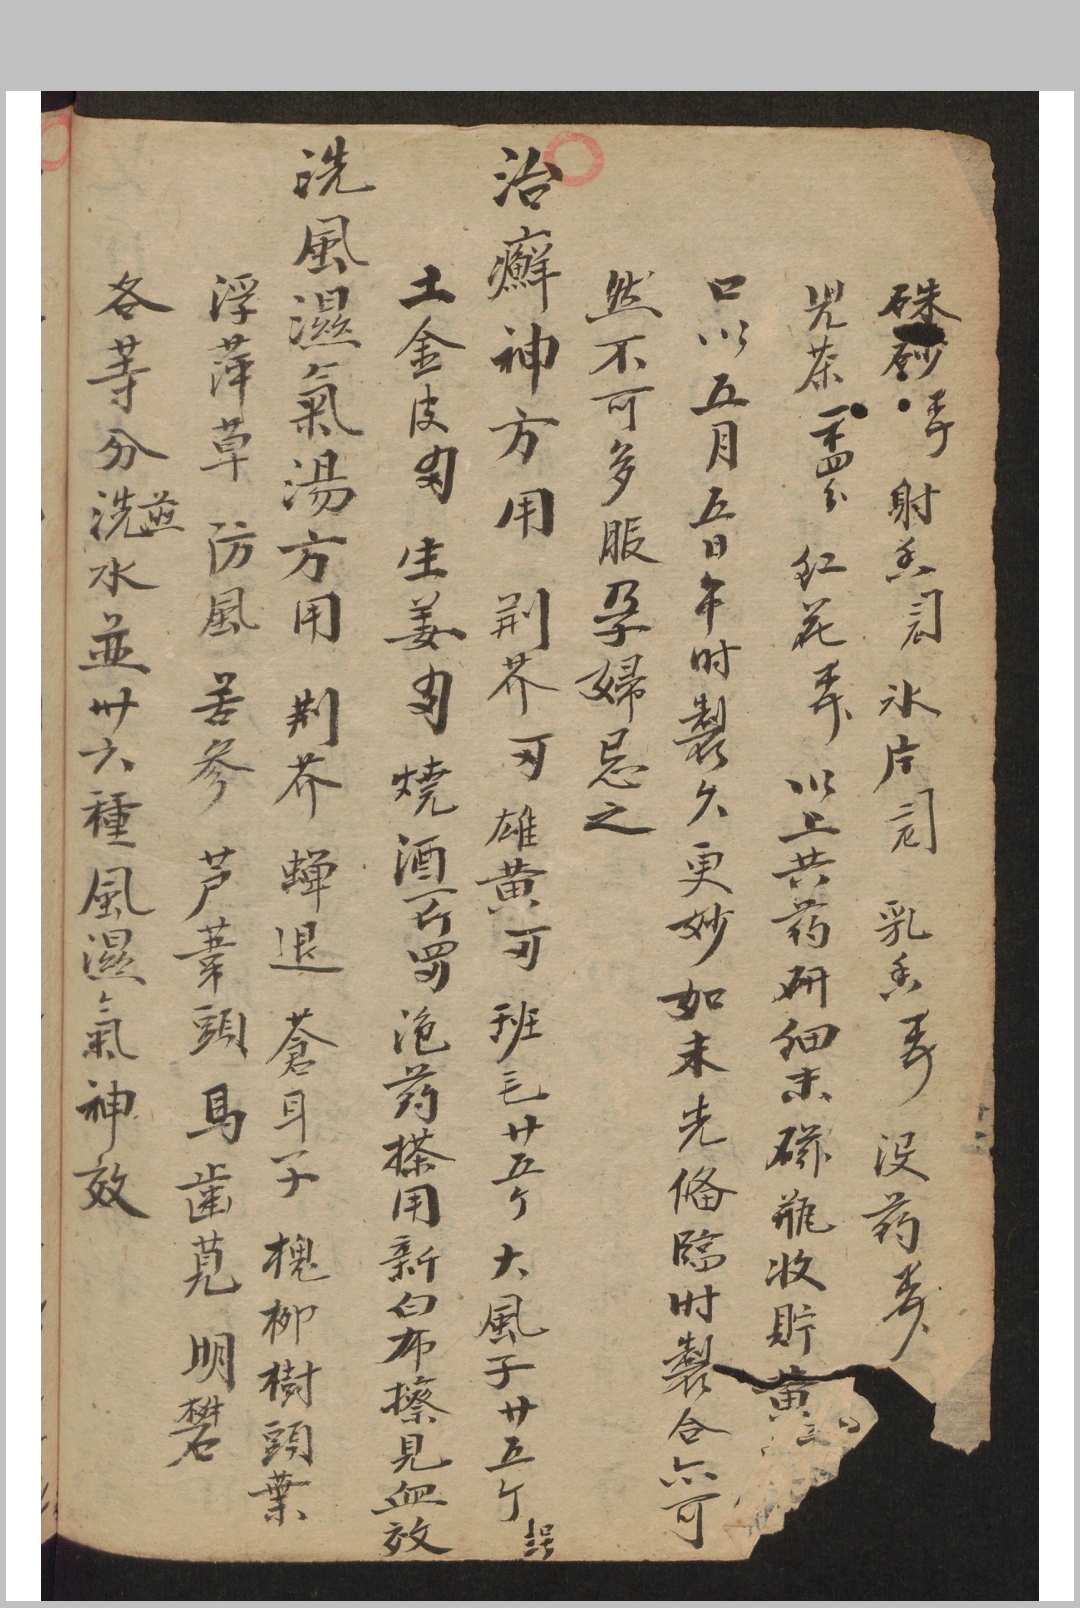 硃砂 射香 氷片 乳香 没药
児茶 紅花 以上共药研细末磁瓶收貯黄
口以五月五日午时製久更妙如未先俻臨时製合亦可
然不可多服孕婦忌之
治癬神方用 荆芥 雄黄 班毛廿五个 大風子廿五个
土金皮 生姜 燒酒 泡药搽用新白布擦見血效
洗風濕氣湯方用 荆芥 蟬退 蒼耳子 槐柳樹頭葉
浮萍草 防風 苦參 芦葦頭 馬齒莧 明礬
各等分並洗水並卅六種風濕氣神效